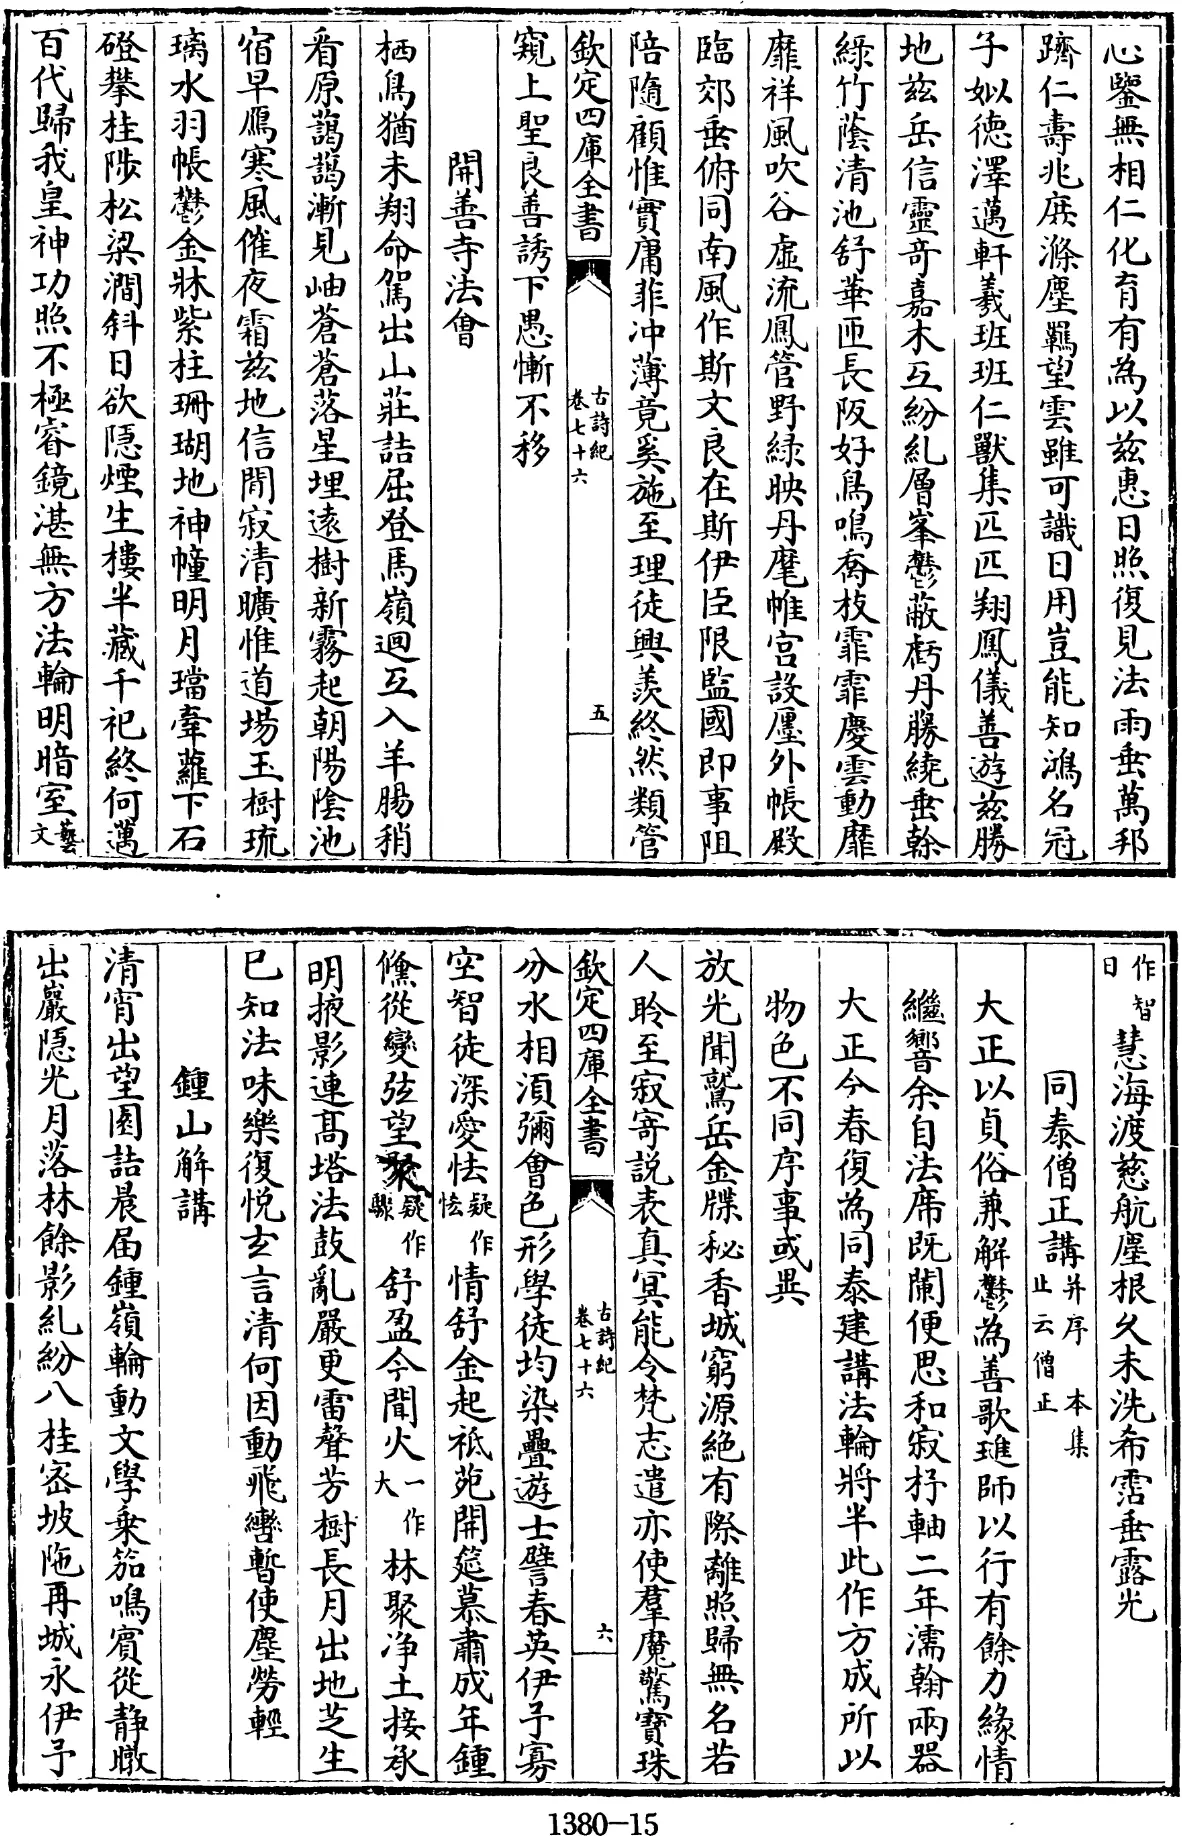 心鑒無相仁化育有為以兹惠日照復見法雨垂萬邦
躋仁壽兆庶滌塵羈望雲雖可識日用豈能知鴻名冠
子姒德澤邁軒羲班班仁獸集匹匹翔鳳儀善遊兹勝
地兹岳信靈奇嘉木互紛糺層峯鬱蔽虧丹藤繞垂幹
綠竹蔭清池舒華匝長阪好鳥鳴喬枝霏霏慶雲動靡
靡祥風吹谷虛流鳳管野緑映丹麾帷宮設廛外帳殿
臨郊垂俯同南風作斯文良在斯伊臣限監國即事阻
陪隨顧惟實庸菲冲薄竟奚施至理徒興羨終然類管
欽定四庫全書 古詩紀 卷七十六 五
窺上聖良善誘下愚慚不移
開善寺法會
栖鳥猶未翔命駕出山莊詰屈登馬嶺迴互入羊腸稍
看原藹藹漸見岫蒼蒼落星埋遠樹新霧起朝陽陰池
宿早鴈寒風催夜霜兹地信閒寂清曠惟道場玉樹琉
璃水羽帳鬱金牀紫柱珊瑚地神幢明月璫牽蘿下石
磴攀桂陟松梁澗斜日欲隱煙生樓半藏千祀終何邁
百代歸我皇神功照不極睿鏡湛無方法輪明暗室藝文
作智日慧海渡慈航塵根久未洗希霑垂露光
同泰僧正講并序 本集止云僧正
大正以貞俗兼解鬱為善歌璡師以行有餘力緣情
繼響余自法席既闌便思和寂杼軸二年濡翰兩器
大正今春復為同泰建講法輪將半此作方成所以
物色不同序事或異
放光聞鷲岳金牒秘香城窮源絶有際離照歸無名若
人聆至寂寄説表真冥能令梵志遣亦使羣魔驚寶珠
欽定四庫全書 古詩紀 卷七十六 六
分水相須彌會色形學徒均染疊遊士譬春英伊予寡
空智徒深愛怯疑作恡情舒金起祗苑開筵慕肅成年鍾
儵從變弦望聚疑作驟舒盈今聞火一作大林聚净土接承
明掖影連高塔法鼓亂嚴更雷聲芳樹長月出地芝生
巳知法味樂復悦玄言清何因動飛轡暫使塵勞輕
鍾山解講
清宵出望園詰晨届鍾嶺輪動文學乗笳鳴賓從静暾
出巖隱光月落林餘影糺紛八桂宻坡陁再城永伊予
1380-15